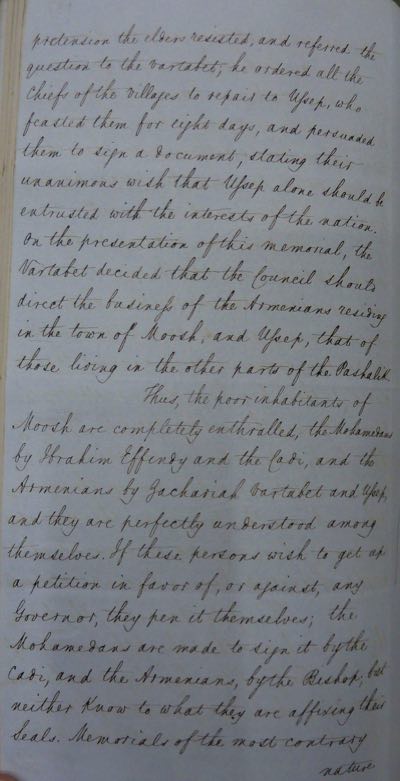 pretension the elders resisted, and referred the
question to the Vartabet; he ordered all the
Chiefs of the Villages to repair to Ussep, who
feasted them for eight days, and persuaded
them to sign a document, stating their
unanimous wish that Ussep alone should be
entrusted with the interests of the nation.
On the presentation of this memorial, the
Vartabet decided that the Council should
direct the business of the Armenians residing
in the town of Moosh, and Ussep, that of
those living in the other parts of the Pashalik.
Thus, the poor inhabitants of
Moosh are completely enthralled, the Mohamedans
by Ibrahim Effendy and the Cadi, and the
Armenians by Zachariah Vartabet and Ussep,
and they are perfectly understood among
themselves. If these persons wish to get up
a petition in favor of, or against, any
Governor, they pen it themselves; the
Mohamedans are made to sign it by the
Cadi, and the Armenians, by the Bishop; but
neither know to what they are affixing their
Seals. Memorials of the most contrary
nature